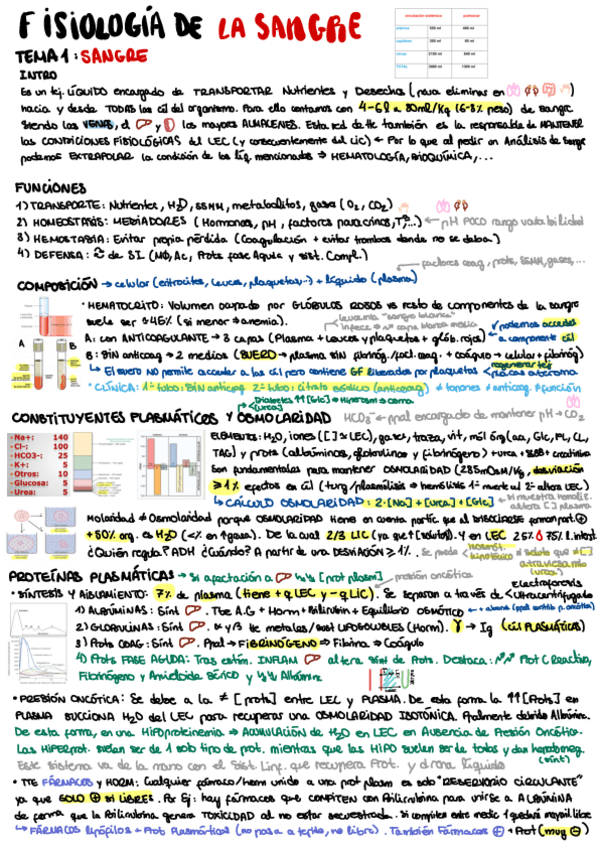 FISIOLOGÍA DE LA SANGRE
TEMA 1: SANGRE
INTRO
Es un tej. LÍQUIDO encargado de TRANSPORTAR Nutrientes y Desechos (para eliminar en
hacia y desde TODAS las cél del organismo. Para ello contamos con 4-6l o 80ml/Kg (6-8% peso) de sangre
siendo las VENAS, el y los mayores ALMACENES. Esta red de tte también es la responsable de MANTENER
las CONDICIONES FISIOLÓGICAS del LEC (y consecuentemente del LIC) ← Por lo que al pedir un Análisis de sangre
podemos EXTRAPOLAR la condición de los líq. mencionados ⇒ HEMATOLOGÍA, BIOQUÍMICA, ...
FUNCIONES
1) TRANSPORTE: Nutrientes, H2O, SSMM, metabolitos, gases (O2, CO2)
2) HOMEOSTASIS: MEDIADORES (Hormonas, pH, factores paracrinos, Tª, ...) ← pH POCO rango variabilidad
3) HEMOSTASIA: Evitar propia pérdida (Coagulación + evitar trombos donde no se deba)
4) DEFENSA: de SI. (MΦ, Ac, Prots fase Aguda y sist. Compl.)
factores coag, prots, SSMM, gases, ...
COMPOSICIÓN → celular (eritrocitos, leucos, plaquetas..) + líquido (plasma)
• HEMATOCRITO: Volumen ocupado por GLÓBULOS ROJOS vs resto de componentes de la sangre
suele ser ≈45% (si menor ⇒ anemia).
leucemia "sangre blanca"
A
B
A: con ANTICOAGULANTE → 3 capas (Plasma + Leucos y plaquetas + glób. rojos)
podemos acceder a componente cél
B: SIN anticoag → 2 medios (SUERO → plasma SIN fibrinóg./fact. coag. + coágulo → celular + fibrinóg)
El suero NO permite acceder a las cél pero contiene GF liberados por plaquetas
• CLÍNICA: 1er tubo: SIN anticoag 2º tubo: citrato sódico (anticoag)
Diabetes ↑↑ [Glc] ⇒ Hiperosm ⇒ coma
[urea]
CONSTITUYENTES PLASMÁTICOS Y OSMOLARIDAD
HCO3- ← ppal encargado de mantener pH → CO2
• Na+: 140
Cl-: 100
• HCO3-: 25
• K+: 5
• Otros: 10
• Glucosa: 5
• Urea: 5
ELEMENTOS: H2O, iones ([ ] ≈ LEC), gases, traza, vit, mól órg (aa, Glc, PL, CL,
TAG) y prots (albúminas, globulinas y fibrinógeno) + urea
Son fundamentales para mantener OSMOLARIDAD (285mOsm/Kg, desviación
≥1% efectos en cél (turg/plasmólisis ⇒ hemólisis
CÁLCULO OSMOLARIDAD: 2·[Na] + [urea] + [Glc]
Molaridad ≠ Osmolaridad porque OSMOLARIDAD tiene en cuenta partíc que al DISOCIARSE
+60% org. es H2O (<% en ♀ gasa). De la cual 2/3 LIC (ya que ↑ solutos). Y en LEC 25%
¿Quién regula? ADH ¿Cuándo? A partir de una DESVIACIÓN ≥1%.
PROTEÍNAS PLASMÁTICAS → Si afectación a [prot plasm]
presión oncótica
Electroforesis
• SÍNTESIS Y AISLAMIENTO: 7% de plasma (tiene + q LEC y - q LIC). Se separan a través de Ultracentrifugado
1) ALBÚMINAS: Sínt . Tte A.G + Horm + Bilirrubin + Equilibrio OSMÓTICO
2) GLOBULINAS: Sínt . α y β tte metales/sust LIPOSOLUBLES (Horm). γ → Ig (cél PLASMÁTICAS)
3) Prots COAG: Sínt . Ppal → FIBRINÓGENO ⇒ Fibrina ⇒ Coágulo
4) Prots FASE AGUDA: Tras estím. INFLAM altera sínt de Prots. Destaca: Prot C Reactiva,
Fibrinógeno y Amieloide SÉRICO y Albúmina
• PRESIÓN ONCÓTICA: Se debe a la ≠ [prots] entre LEC y PLASMA. De esta forma la ↑↑[Prots] en
PLASMA SUCCIONA H2O del LEC para recuperar una OSMOLARIDAD ISOTÓNICA. Ppalmente debido Albúmina.
De esta forma, en una HIPOproteinemia ⇒ ACUMULACIÓN de H2O en LEC en Ausencia de Presión Oncótica.
Las HIPERprot. suelen ser de 1 solo tipo de prot. mientras que las HIPO suelen ser de todas y dan hepatoneg.
(sínt)
Este sistema va de la mano con el Sist. Linf. que recupera Prot. y drena líquido
• TTE FÁRMACOS y HORM: Cualquier fármaco/horm unido a una prot plasm es solo "RESERVORIO CIRCULANTE"
ya que SOLO ⊕ si LIBRES. Por Ej: hay fármacos que COMPITEN con Bilirrubina para unirse a ALBÚMINA
de forma que la Bilirrubina genera TOXICIDAD al no estar secuestrada. Si compiten entre medic 1 quedará mayorit. libre
FÁRMACOS lipófilos + Prot Plasmáticas (no pasa a tejido, no libre). También Fármacos ⊕ + Prot (muy ⊖)